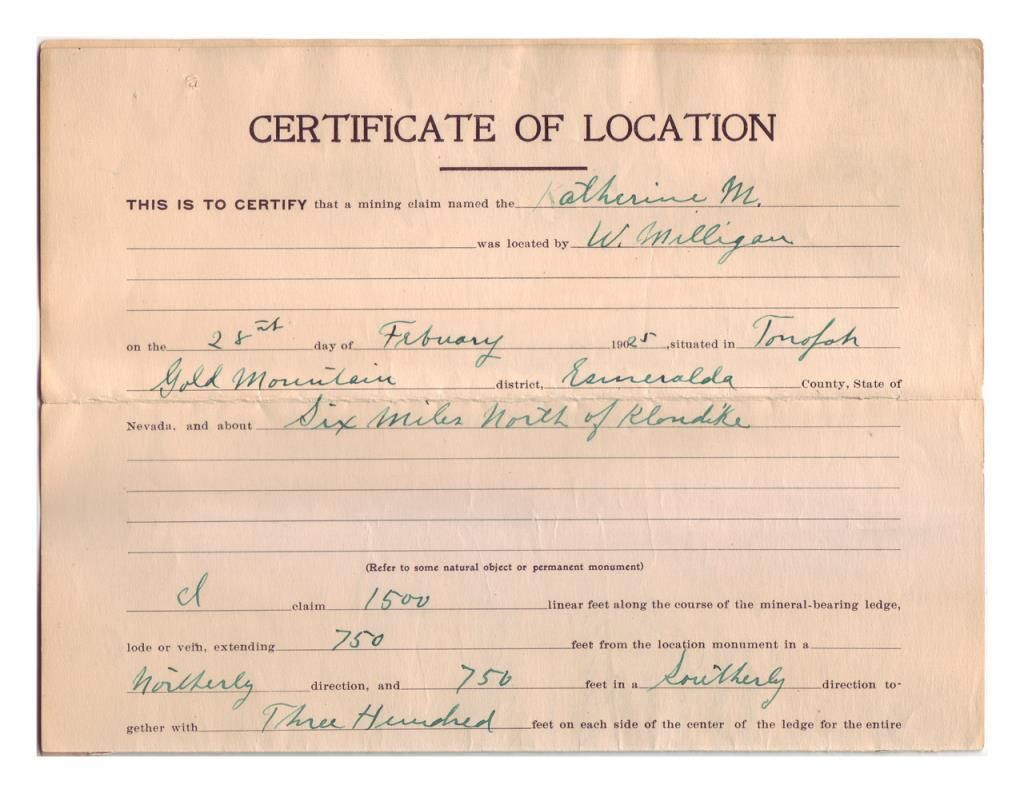 CERTIFICATE OF LOCATION
THIS IS TO CERTIFY that a mining claim named the Katherine M.
was located by W. Milligan
on the 28nt day of Febuary 1905, situated in Tonopah
Gold Mountain district, Esmeralda County, State of
Nevada, and about Six Miles North of Klondike
(Refer to some natural object or permanent monument)
I claim 1500 linear feet along the course of the mineral-bearing ledge,
lode or vein, extending 750 feet from the location monument in a
Northerly direction, and 750 feet in a Southerly direction to-
gether with Three Hundred feet on each side of the center of the ledge for the entire